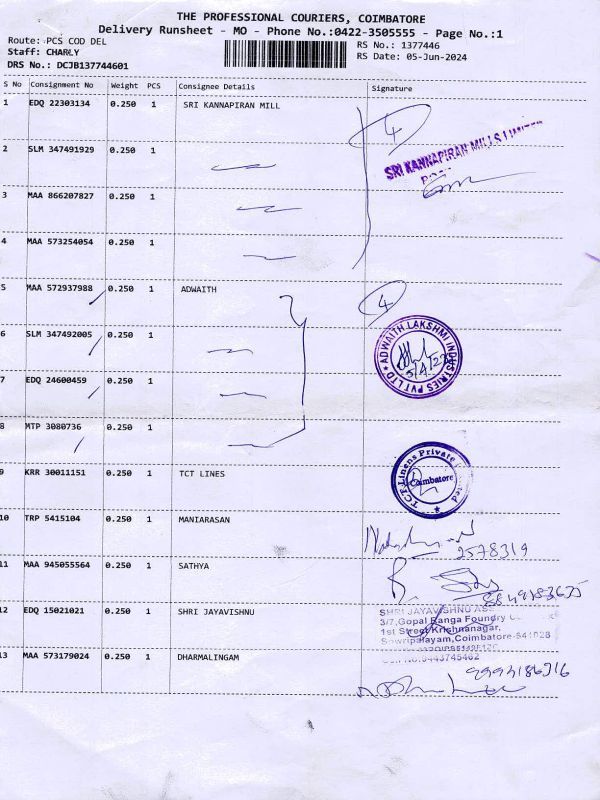 THE PROFESSIONAL COURIERS, COIMBATORE
Delivery Runsheet - MO - Phone No.:0422-3505555 - Page No.:1
Route: PCS COD DEL
Staff: CHARLY
DRS No.: DCJB137744601
RS No.: 1377446
RS Date: 05-Jun-2024
S No Consignment No Weight PCS Consignee Details Signature
1 EDQ 22303134 0.250 1 SRI KANNAPIRAN MILL
4
SRI KANNAPIRAN MILLS LIMITED
2 SLM 347491929 0.250 1
3 MAA 866207827 0.250 1
4 MAA 573254054 0.250 1
5 MAA 572937988 0.250 1 ADWAITH
4
ADWAITH LAKSHMI INDUSTRIES PVT LTD
6 SLM 347492005 0.250 1
7 EDQ 24600459 0.250 1
8 MTP 3080736 0.250 1
9 KRR 30011151 0.250 1 TCT LINES
TCT Linens Private Limited
Coimbatore
10 TRP 5415104 0.250 1 MANIARASAN
2578319
11 MAA 945055564 0.250 1 SATHYA
12 EDQ 15021021 0.250 1 SHRI JAYAVISHNU
SHRI JAYAVISHNU
3/7,Gopal Ranga Foundry
1st Street Krishnanagar,
Sowripalayam,Coimbatore-641028
13 MAA 573179024 0.250 1 DHARMALINGAM